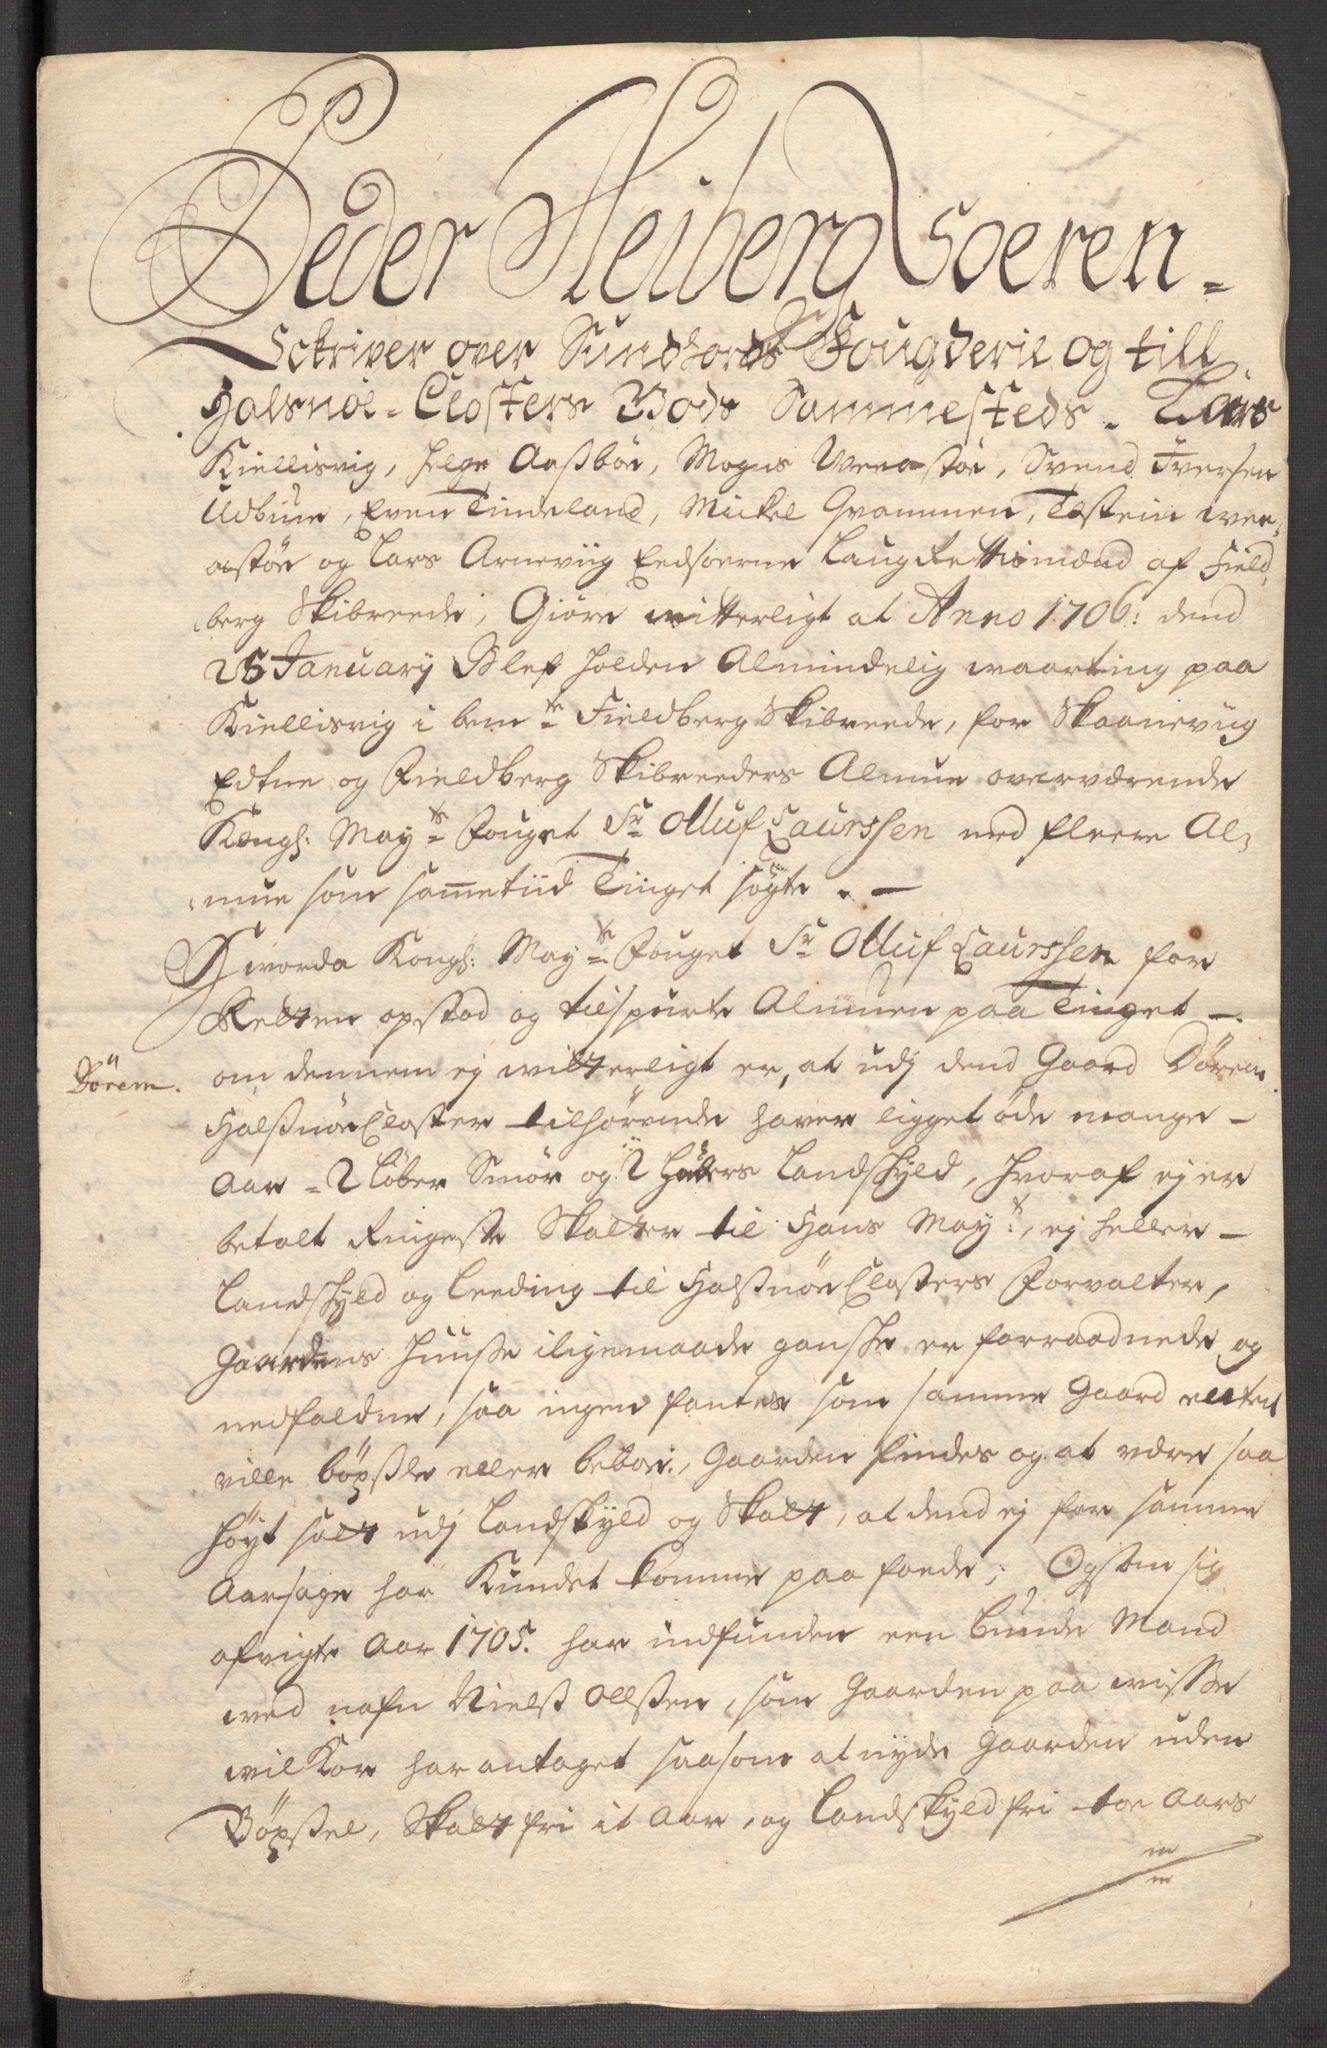 Peder Heiberg Soeren-
Schriver over Sundhords Fougderie og till
Halsnöe-Closters Gods Sammesteds. Lars
Kiellisvig, Helge Aasböe, Mogns Ureastöe, Svend Iversen
Udbiue, Even Tindeland, Mickel Qvammen, Tostein wre,
astöe og Lars Arneviig Eedsoerne LaugRettismænd af Field,
berg Skibreede, Giöre witterligt at Anno 1706: dend
25 January Blef holden Almindelig waarting paa
Kiellisvig i bemte Fieldberg Skibreede, for Skaaneviig
Edtne og Fieldberg Skibreeders Almue overværende
Kongl: Mayts Fouget Sr Olluf Laurssen med fleere Al,
mue som sammetiid Tinget sögte. -
Hvorda Kongl: Mayts Fouget Sr Olluf Laurssen for
Retten opstod og tilspurte Almuen paa Tinget -
Börem.
om dennem ej witterligt er, at udj dend Gaard Börem
Halsnöe Closter tilhörende haver ligget öde mange -
Aar - 2 Löber Smör og 2 Huders Landskyld, hvoraf ej er
betalt Ringeste Skatter til Hans Mayt:, ej heller -
Landskyld og Leeding til Halsnöe Closters Forvalter,
Gaardens Huuse iligemaade ganske er forraadnede og
nedfaldne, saa ingen fantes som samme Gaard enten
ville böxle eller beboe, Gaarden findes og at være saa
höyt satt udj Landskyld og Skatt, at dend ej for samme
Aarsage har Kundet komme paa foede; Og som sig
afvigte Aar 1705. har indfunden een Bunde Mand
wed nafn Niels Ollsen, som Gaarden paa wisse
wilkor har antaget saasom at nyde Gaarden uden
Böxel, Skatt fri it Aar, og Landskyld fri toe Aars